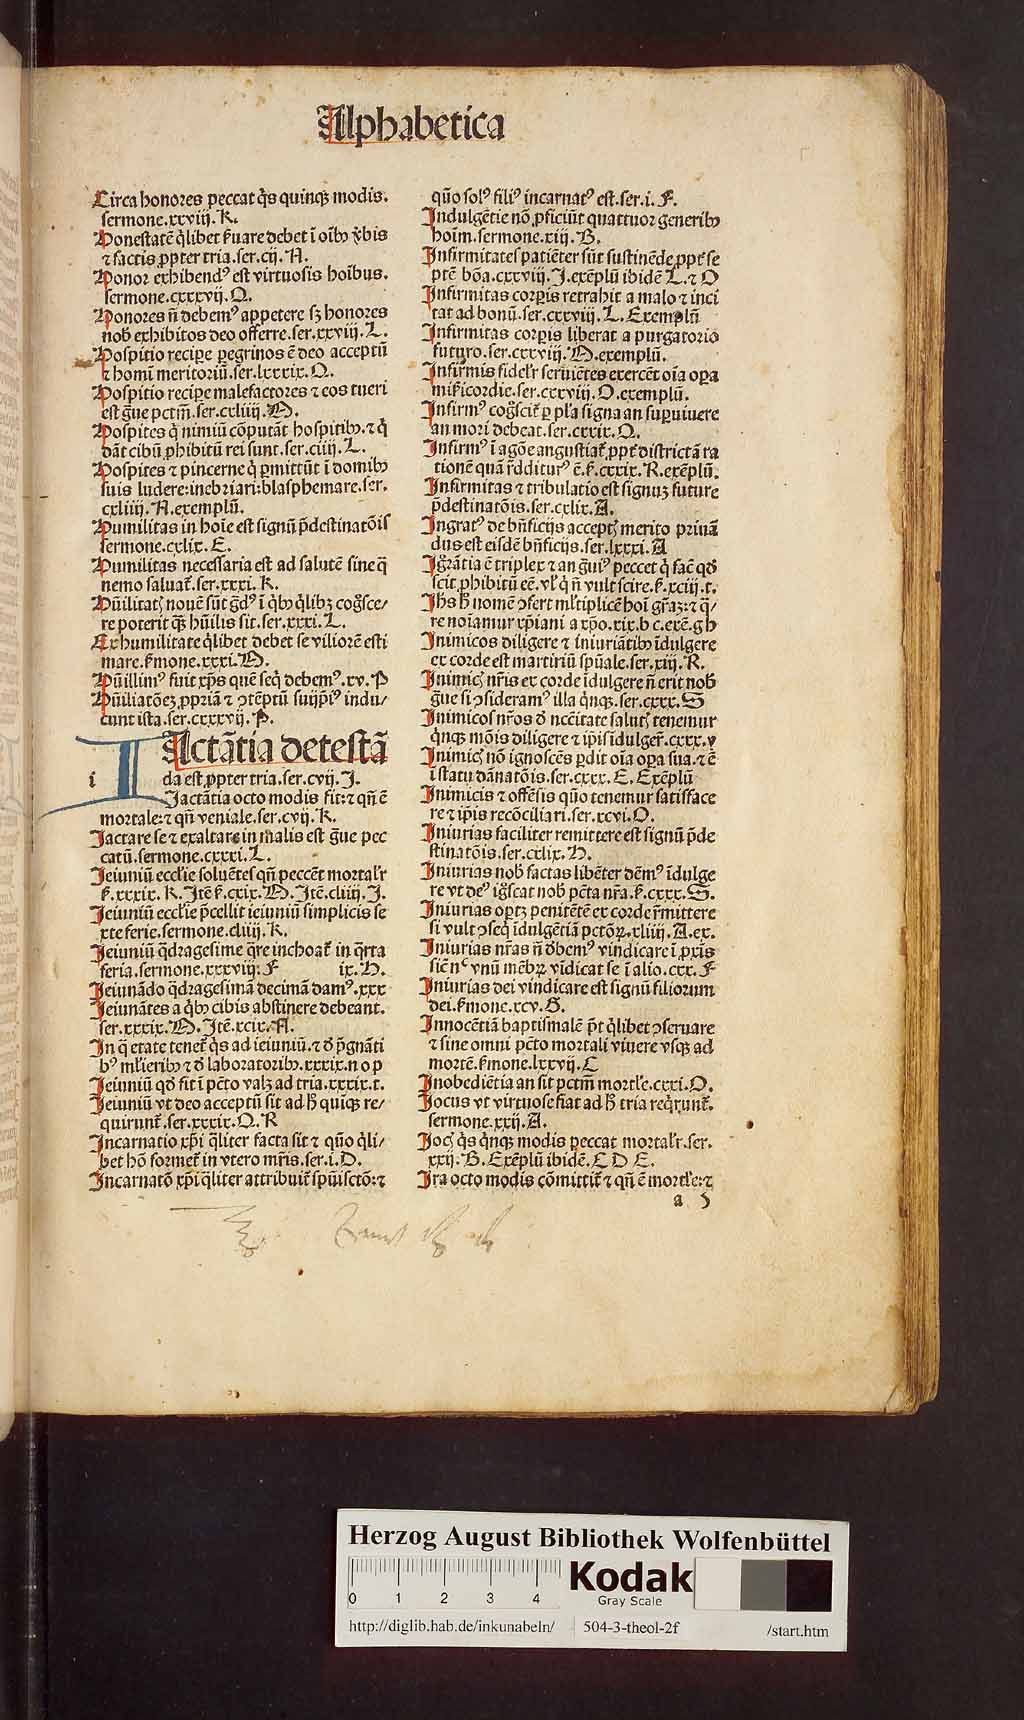 Alphabetica
Circa honores peccat q̃s quinqȝ modis.
sermone.xxviij.K.
Honestatẽ q̃libet ẜuare debet ĩ oĩbꝰ ꝟbis
⁊ factis ꝓpter tria.ser.cij.A.
Honor exhibendꝰ est virtuosis hoĩbus.
sermone.cxxxvij.O.
Honores ñ debemꝰ appetere sȝ honores
nob̃ exhibitos deo offerre.ser.xxviij.L.
Hospitio recipe ꝑegrinos ẽ deo acceptũ
⁊ homĩ meritoriũ.ser.lxxxix.O.
Hospitio recipe malefactores ⁊ eos tueri
est g̃ue pctm̃.ser.cxliiij.M.
Hospites q̃ nimiũ cõputãt hospitibꝰ.⁊ q̃
dãt cibũ ꝓhibitũ rei sunt.ser.ciiij.L.
Hospites ⁊ pincerne q̃ ꝑmittũt ĩ domibꝰ
suis ludere:inebriari:blasphemare.ser.
cxliiij.A.exemplũ.
Humilitas in hoĩe est signũ p̃destinatõis
sermone.cxlix.E.
Humilitas necessaria est ad salutẽ sine q̃
nemo saluat᷑.ser.xxxi.K.
Hũilitatꝭ nouẽ sũt g̃dꝰ ĩ q̃bꝰ q̃libȝ cog̃sce/
re poterit qȝ hũilis sit.ser.xxxi.L.
Ex humilitate q̃libet debet se viliorẽ esti
mare.ẜmone.xxxi.M.
Hũillimꝰ fuit xp̃s quẽ seq̃ debemꝰ.xv.P
Hũiliatõeȝ ꝓpriã ⁊ ↄtẽptũ suijp̃iꝰ indu/
cunt ista.ser.cxxxvij.P.
IActãtia detestã
i
da est ꝓpter tria.ser.cvij.I.
Iactãtia octo modis fit:⁊ qñ ẽ
mortale:⁊ qñ veniale.ser.cvij.K.
Iactare se ⁊ exaltare in malis est g̃ue pec
catũ.sermone.cxxxi.L.
Ieiuniũ eccl̃ie soluẽtes qñ peccẽt mortal̃r
ẜ.xxxix.K.Itẽ ẜ.cxix.M.Itẽ.cliiij.I.
Ieiuniũ eccl̃ie p̃cellit ieiuniũ simplicis se
xte ferie.sermone.cliiij.K.
Ieiuniũ q̃dragesime q̃re inchoat᷑ in q̃rta
feria.sermone.xxxviij.F ix.H.
Ieiunãdo q̃dragesimã decimã damꝰ.xxx
Ieiunãtes a q̃bꝰ cibis abstinere debeant.
ser.xxxix.M.Itẽ.xcix.A.
In q̃ etate tenet᷑ q̃s ad ieiuniũ.⁊ ð p̃gnãti
bꝰ ml̃ieribꝰ ⁊ ð laboratoribꝰ.xxxix.n o p
Ieiuniũ qð fit ĩ pctõ valȝ ad tria.xxxix.t.
Ieiuniũ vt deo acceptũ sit ad h̃ quĩqȝ re/
quirunt᷑.ser.xxxix.Q.R
Incarnatio xp̃i q̃liter facta sit ⁊ quõ q̃li/
bet hõ formet᷑ in vtero mr̃is.ser.i.D.
Incarnatõ xp̃i q̃liter attribuit᷑ spũisctõ:⁊
quõ solꝰ filiꝰ incarnatꝰ est.ser.i.F.
Indulgẽtie nõ ꝓficiũt quattuor generibꝰ
hoĩm.sermone.xiij.B.
Infirmitates patiẽter sũt sustinẽde ꝓpt᷑ se
ptẽ bõa.cxxviij.I.exẽplũ ibidẽ L.⁊ O
Infirmitas corꝑis retrahit a malo ⁊ inci
tat ad bonũ.ser.cxxviij.L.Exemplũ
Infirmitas corꝑis liberat a purgatorio
futuro.ser.cxxviij.M.exemplũ.
Infirmis fidel̃r seruiẽtes exercẽt oĩa oꝑa
mĩcordie.ser.cxxviij.O.exemplũ.
Infirmꝰ cog̃scit᷑ ꝑ pl̃a signa an suꝑuiuere
an mori debeat.ser.cxxix.Q.
Infirmꝰ ĩ agõe angustiat᷑ ꝓpt᷑ districtã ra
tionẽ quã r̃dditurꝰ ẽ.ẜ.cxxix.R.exẽplũ.
Infirmitas ⁊ tribulatio est signuȝ future
p̃destinatõis.ser.cxlix.A.
Ingratꝰ de bñficijs acceptꝭ merito priuã
dus est eisdẽ bñficijs.ser.lxxxi.A
Igr̃atia ẽ triplex ⁊ an g̃uiꝰ peccet q̃ facit qð
scit ꝓhibitũ eẽ.vl̃ q̃ ñ vult scire.ẜ.xciij.t.
Ihs h̃ nomẽ ↄfert ml̃tiplicẽ hoĩ gr̃aȝ:⁊ q̃/
re noĩamur xp̃iani a xp̃o.xix.b c.exẽ.g h
Inimicos diligere ⁊ iniuriãtibꝰ ĩdulgere
ex corde est martiriũ spũale.ser.xiij.R.
Inimicꝭ nr̃is ex corde ĩdulgere ñ erit nob̃
g̃ue si ↄsideramꝰ illa q̃nqȝ.ser.cxxx.S
Inimicos nr̃os ð ncc̃itate salutꝭ tenemur
q̃nqȝ mõis diligere ⁊ ip̃is ĩdulger᷑.cxxx.v
Inimicꝭ nõ ignoscẽs ꝑdit oĩa oꝑa sua.⁊ ẽ
ĩ statu dãnatõis.ser.cxxx.E.Exẽplũ
Inimicis ⁊ offẽsis quõ tenemur satisface
re ⁊ ip̃is recõciliari.ser.xcvi.O.
Iniurias faciliter remittere est signũ p̃de
stinatõis.ser.cxlix.H.
Iniurias nob̃ factas libẽter dẽmꝰ ĩdulge
re vt deꝰ ig̃scat nob̃ pctã nr̃a.ẜ.cxxx.S.
Iniurias oportȝ penitẽtẽ ex corde r̃mittere
si vult ↄseq̃ ĩdulgẽtiã pctõꝝ.xliiij.A.ex.
Iniurias nr̃as ñ ðbemꝰ vindicare ĩ ꝓxĩs
sic̃ nᶜ vnũ mẽbꝝ vĩdicat se ĩ alio.cxx.F
Iniurias dei vindicare est signũ filiorum
dei.ẜmone.xcv.G.
Innocẽtiã baptismalẽ p̃t q̃libet ↄseruare
⁊ sine omni pctõ mortali viuere vsqȝ ad
mortẽ.ẜmone.lxxvij.C
Inobediẽtia an sit pctm̃ mortl̃e.cxxi.O.
Iocus vt virtuose fiat ad h̃ tria req̃runt᷑.
sermone.xxij.A.
Iocꝭ q̃s q̃nqȝ modis peccat mortal̃r.ser.
xxij.B.Exẽplũ ibidẽ.C D E.
Ira octo modis cõmittit᷑ ⁊ qñ ẽ mortl̃e:⁊
a 5
Herzog August Bibliothek Wolfenbüttel
0 1 2 3 4
Kodak
Gray Scale
http://diglib.hab.de/inkunabeln/ 504-3-theol-2f /start.htm